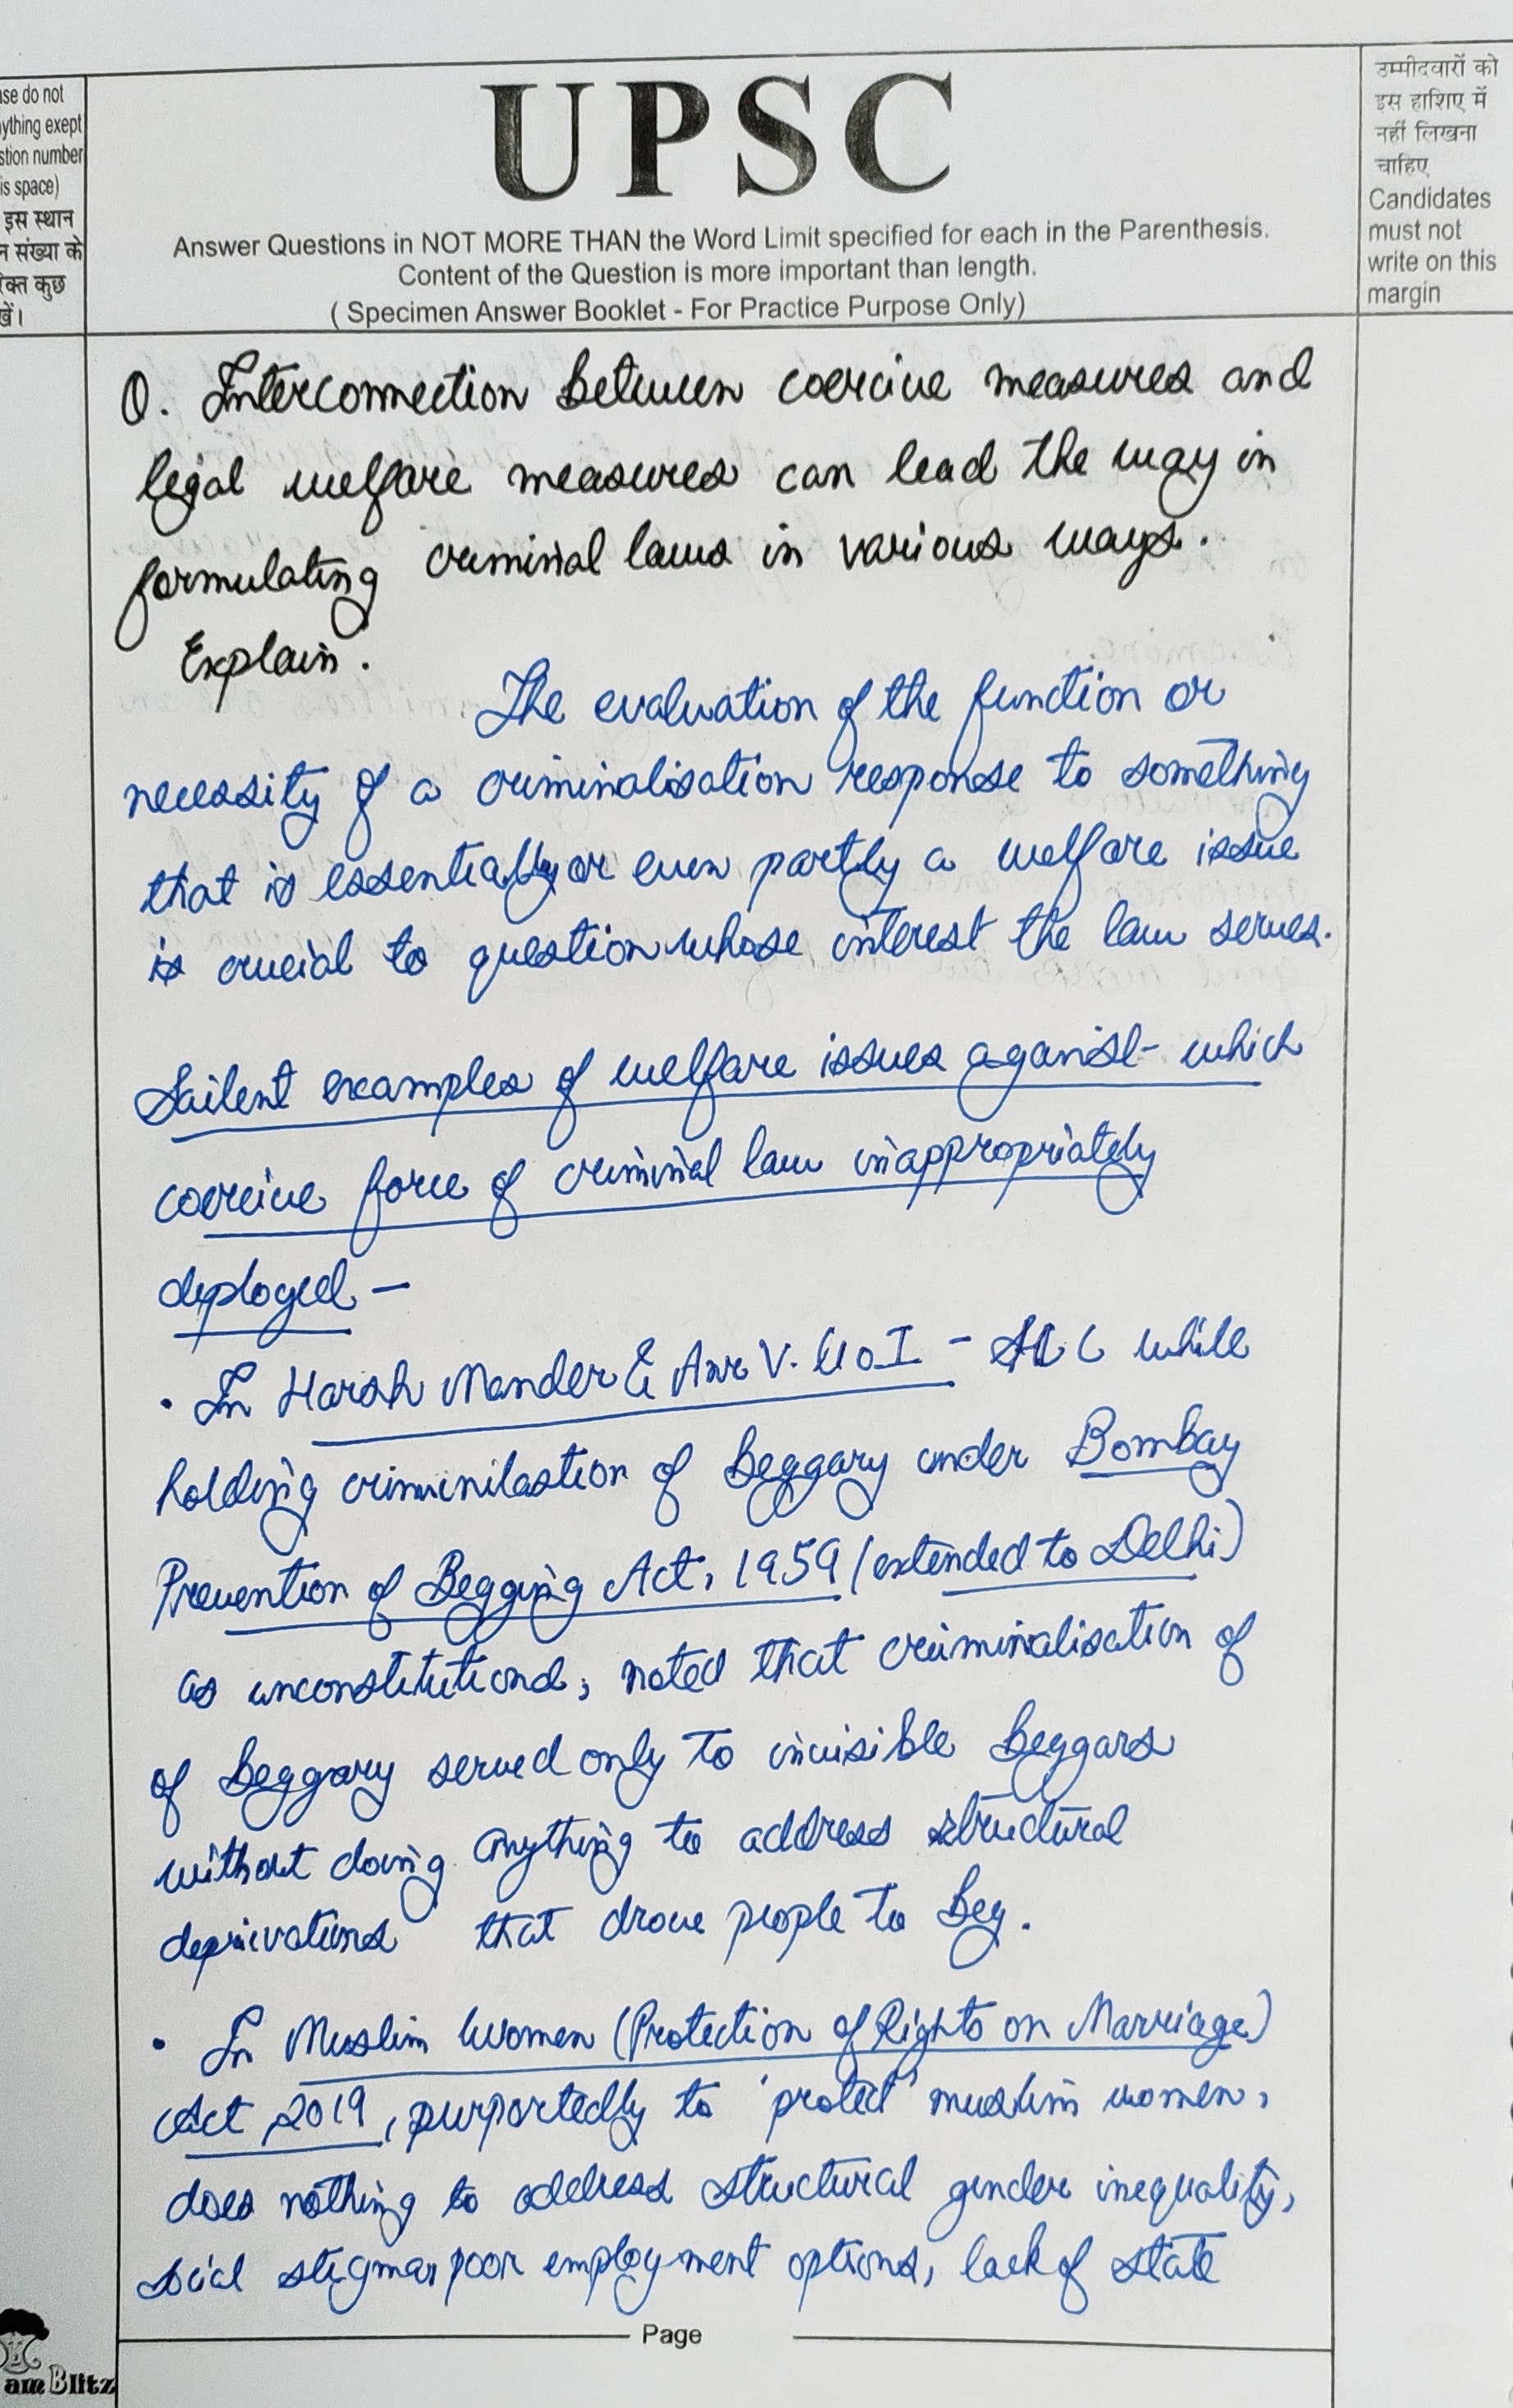 ase do not
ything exept
stion number
is space)
इस स्थान
न संख्या के
रिक्त कुछ
खें।
UPSC
Answer Questions in NOT MORE THAN the Word Limit specified for each in the Parenthesis.
Content of the Question is more important than length.
( Specimen Answer Booklet - For Practice Purpose Only)
उम्मीदवारों को
इस हाशिए में
नहीं लिखना
चाहिए
Candidates
must not
write on this
margin
Q. Interconnection between coercive measures and
legal welfare measures can lead the way in
formulating criminal laws in various ways.
Explain.
The evaluation of the function or
necessity of a criminalisation response to something
that is essentially or even partly a welfare issue
is crucial to question whose interest the law serves.
Sailent examples of welfare issues aganist which
coercive force of criminal law inappropriately
deployed -
• In Harsh Mander & Anr V. UoI - while
holding criminilastion of beggary under Bombay
Prevention of Begging Act, 1959 (extended to Delhi)
as unconstitutional, noted that criminalisation of
of beggary served only to invisible beggars
without doing anything to address structural
deprivations that drove people to beg.
• In Muslim Women (Protection of Rights on Marriage)
Act 2019, purportedly to 'protect' muslim women,
does nothing to address structural gender inequality,
social stigma, poor employment options, lack of state
Page
am Blitz